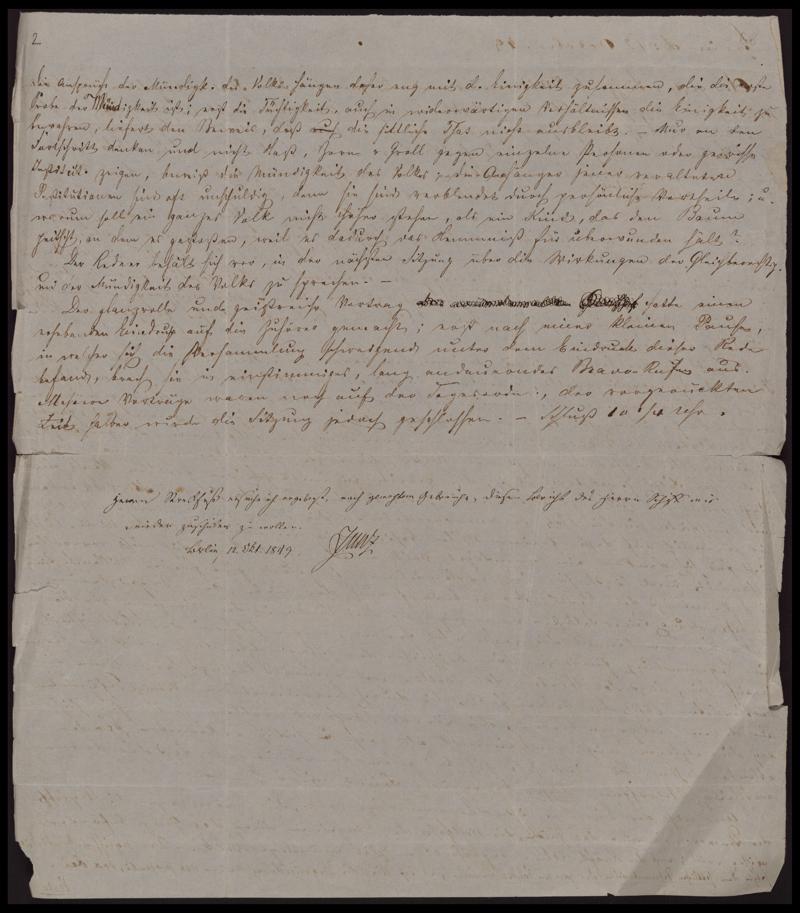 2
die Ansprüche der Mündigk. des Volks hängen daher eng mit d. Einigkeit zusammen, die die erste
Probe der Mündigkeit ist; erst die Tüchtigkeit, auch in widerwärtigen Verhältnissen die Einigkeit zu
bewahren, liefert den Beweis, daß auch die sittliche That nicht ausbleibt. – Nur an den
Fortschritt denken und nicht Haß, Zorn u Groll gegen einzelne Personen oder gewisse
Institut. zeigen, beweist die Mündigkeit des Volks; die Anhänger jener veralteten
Institutionen sind oft unschuldig, denn sie sind verblendet durch persönliche Vortheile; u.
warum soll ein ganzes Volk nicht höher stehen, als ein Kind, das den Baum
peitscht, an dem es gestoßen, weil es dadurch das Hemmniß für überwunden hält?
Der Redner behält sich vor, in der nächsten Sitzung über die Wirkungen der Gleichberechtg.
und der Mündigkeit des Volks zu sprechen. –
Der glanzvolle und geistreiche Vortrag hatte einen
erhebenden Eindruck auf die Zuhörer gemacht; erst nach einer kleinen Pause,
in welcher sich die Versammlung schweigend unter dem Eindruck dieser Rede
befand, brach sie in einstimmiges, lang andauerndes Bravo-Rufen aus.
Mehrere Vorträge waren noch auf der Tagesordn., der vorgerückten
Zeit halber wurde die Sitzung jedoch geschlossen. – Schluß 10 1/4 Uhr.
Herrn ersuche ich ergebenst, nach gemachtem Gebrauche, diesen Bericht des Herrn mir
wieder zuschicken zu wollen.
Berlin, 12. Okt. 1849. Zunz